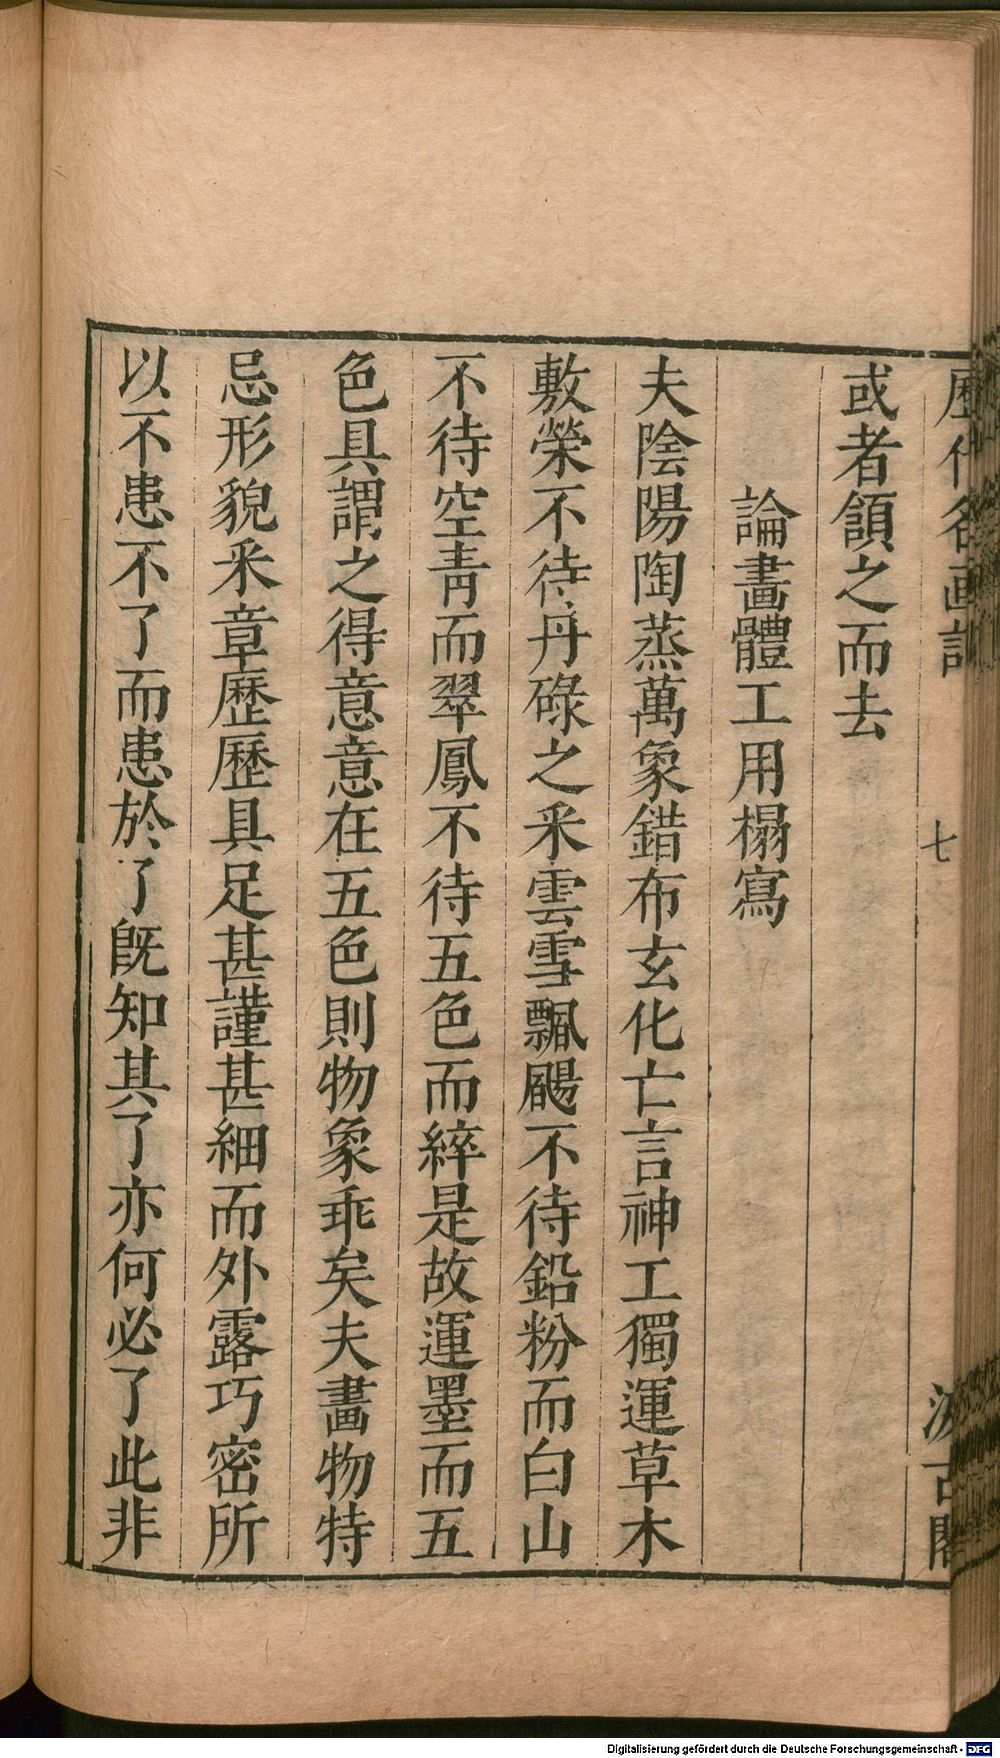 歷代名画記
七
汲古閣
或者頷之而去
論畫體工用榻寫
夫陰陽陶蒸萬象錯布玄化亡言神工獨運草木
敷榮不待丹碌之采雲雪飄颺不待鉛粉而白山
不待空青而翠鳳不待五色而綷是故運墨而五
色具謂之得意意在五色則物象乖矣夫畫物特
忌形貌采章歷歷具足甚謹甚細而外露巧密所
以不患不了而患於了旣知其了亦何必了此非
Digitalisierung gefördert durch die Deutsche Forschungsgemeinschaft - DFG